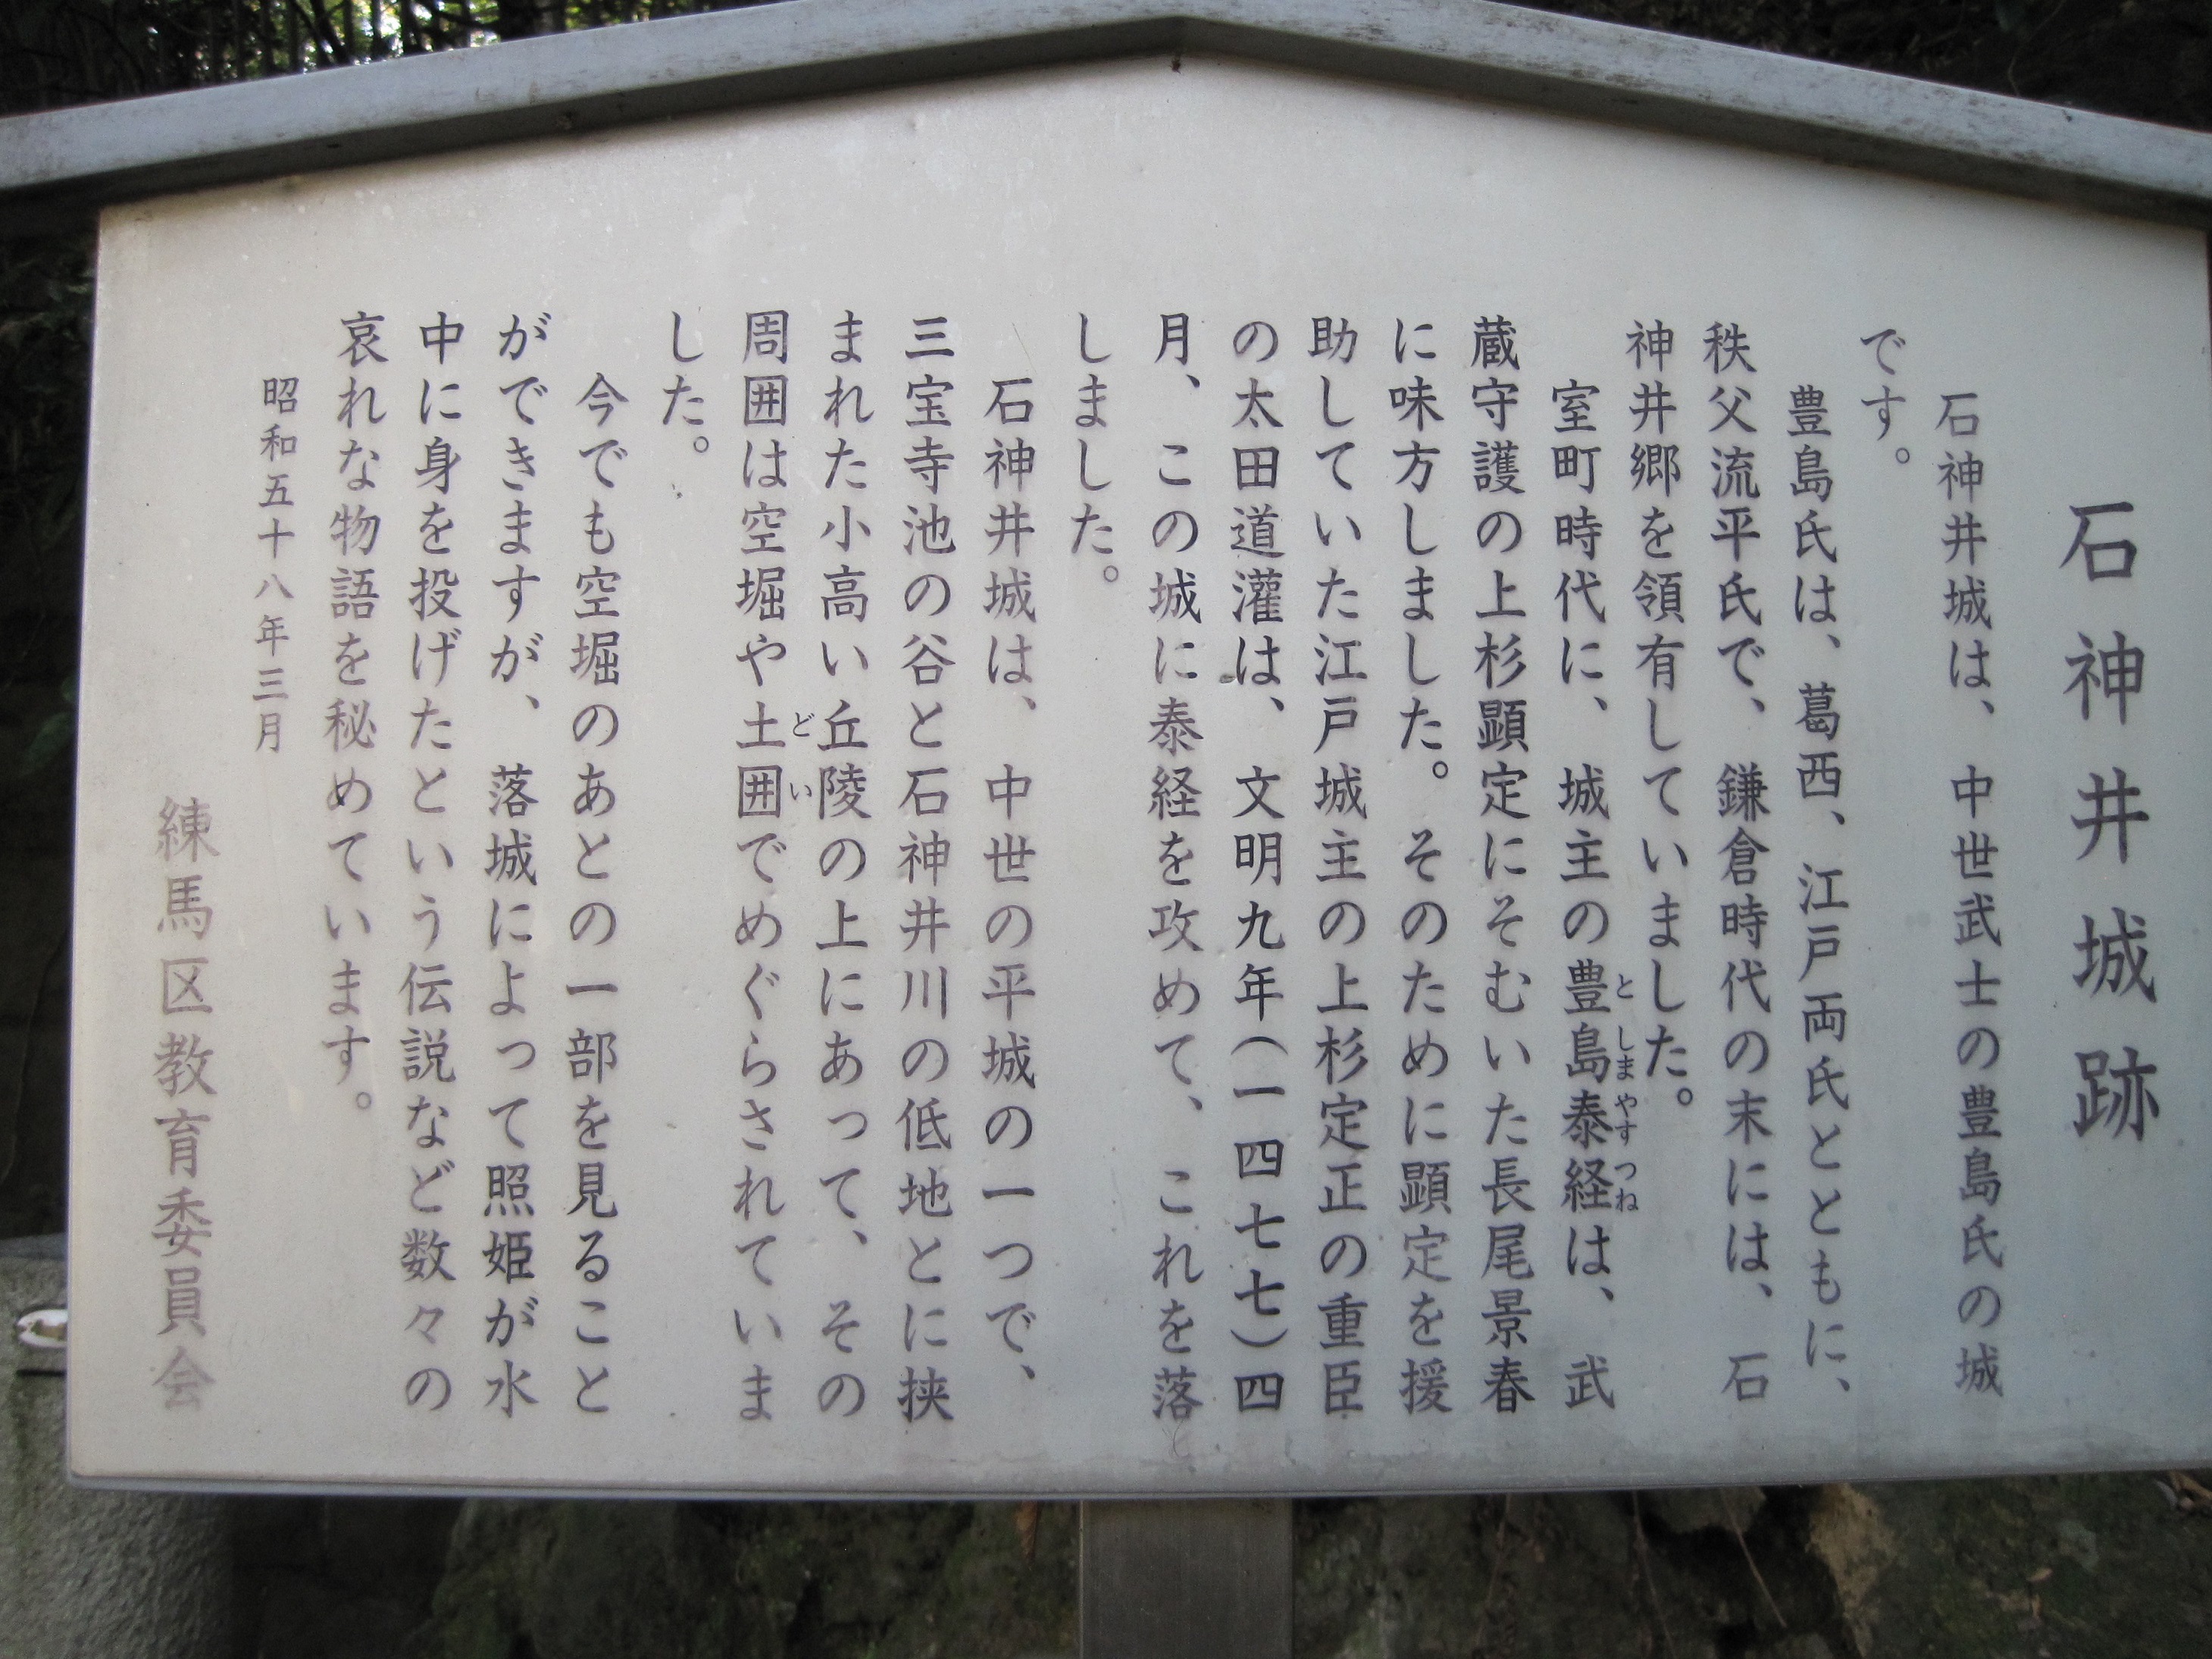 石神井城跡
石神井城は、中世武士の豊島氏の城
です。
豊島氏は、葛西、江戸両氏とともに、
秩父流平氏で、鎌倉時代の末には、石
神井郷を領有していました。
室町時代に、城主の豊島泰経は、武
としまやすつね
蔵守護の上杉顕定にそむいた長尾景春
に味方しました。そのために顕定を援
助していた江戸城主の上杉定正の重臣
の太田道灌は、文明九年(一四七七)四
月、この城に泰経を攻めて、これを落
しました。
石神井城は、中世の平城の一つで、
三宝寺池の谷と石神井川の低地とに挟
まれた小高い丘陵の上にあって、その
周囲は空堀や土囲でめぐらされていま
どい
した。
今でも空堀のあとの一部を見ること
ができますが、落城によって照姫が水
中に身を投げたという伝説など数々の
哀れな物語を秘めています。
昭和五十八年三月
練馬区教育委員会